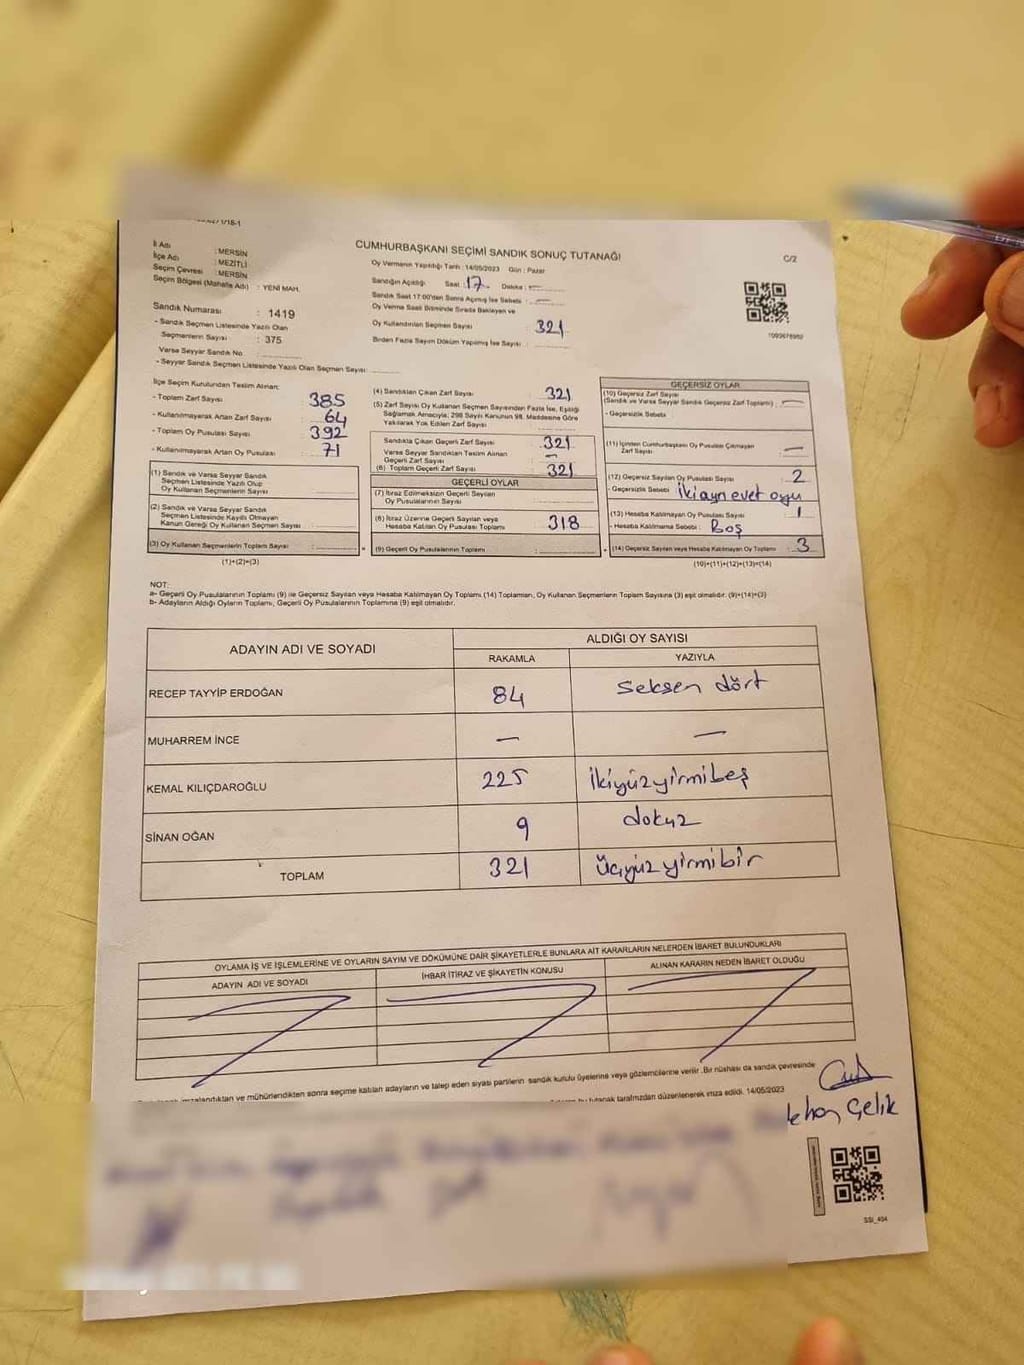 CUMHURBAŞKANI SEÇİMİ SANDIK SONUÇ TUTANAĞI
C/2
İl Adı : MERSİN
İlçe Adı : MEZİTLİ
Seçim Çevresi : MERSİN
Seçim Bölgesi (Mahalle Adı) : YENİ MAH.
Oy Vermenin Yapıldığı Tarih : 14/05/2023 Gün : Pazar
Sandığın Açıldığı Saat : 17 Dakika : —
Sandık Saat 17:00'den Sonra Açılmış İse Sebebi : —
Oy Verme Saati Bitiminde Sırada Bekleyen ve
Oy Kullandırılan Seçmen Sayısı : 321
Birden Fazla Sayım Döküm Yapılmış İse Sayısı :
Sandık Numarası : 1419
- Sandık Seçmen Listesinde Yazılı Olan
Seçmenlerin Sayısı : 375
Varsa Seyyar Sandık No
- Seyyar Sandık Seçmen Listesinde Yazılı Olan Seçmen Sayısı:
İlçe Seçim Kurulundan Teslim Alınan:
- Toplam Zarf Sayısı : 385
- Kullanılmayarak Artan Zarf Sayısı : 64
- Toplam Oy Pusulası Sayısı : 392
- Kullanılmayarak Artan Oy Pusulası : 71
(1) Sandık ve Varsa Seyyar Sandık
Seçmen Listesinde Yazılı Olup
Oy Kullanan Seçmenlerin Sayısı :
(2) Sandık ve Varsa Seyyar Sandık
Seçmen Listesinde Kayıtlı Olmayan
Kanun Gereği Oy Kullanan Seçmen Sayısı :
(3) Oy Kullanan Seçmenlerin Toplam Sayısı :
(1)+(2)=(3)
(4) Sandıktan Çıkan Zarf Sayısı : 321
(5) Zarf Sayısı Oy Kullanan Seçmen Sayısından Fazla İse, Eşitliği
Sağlamak Amacıyla; 298 Sayılı Kanunun 98. Maddesine Göre
Yakılarak Yok Edilen Zarf Sayısı :
Sandıkta Çıkan Geçerli Zarf Sayısı : 321
Varsa Seyyar Sandıktan Teslim Alınan
Geçerli Zarf Sayısı : —
(6) Toplam Geçerli Zarf Sayısı : 321
GEÇERLİ OYLAR
(7) İtiraz Edilmeksizin Geçerli Sayılan
Oy Pusulalarının Sayısı :
(8) İtiraz Üzerine Geçerli Sayılan veya
Hesaba Katılan Oy Pusulası Toplamı : 318
(9) Geçerli Oy Pusulalarının Toplamı :
GEÇERSİZ OYLAR
(10) Geçersiz Zarf Sayısı
(Sandık ve Varsa Seyyar Sandık Geçersiz Zarf Toplamı) : —
- Geçersizlik Sebebi
(11) İçinden Cumhurbaşkanı Oy Pusulası Çıkmayan
Zarf Sayısı : —
(12) Geçersiz Sayılan Oy Pusulası Sayısı : 2
- Geçersizlik Sebebi : iki ayrı evet oyu
(13) Hesaba Katılmayan Oy Pusulası Sayısı : 1
- Hesaba Katılmama Sebebi : Boş
(14) Geçersiz Sayılan veya Hesaba Katılmayan Oy Toplamı : 3
(10)+(11)+(12)+(13)=(14)
NOT:
a- Geçerli Oy Pusulalarının Toplamı (9) ile Geçersiz Sayılan veya Hesaba Katılmayan Oy Toplamı (14) Toplamları, Oy Kullanan Seçmenlerin Toplam Sayısına (3) eşit olmalıdır. (9)+(14)=(3)
b- Adayların Aldığı Oyların Toplamı, Geçerli Oy Pusulalarının Toplamına (9) eşit olmalıdır.
ADAYIN ADI VE SOYADI
ALDIĞI OY SAYISI
RAKAMLA YAZIYLA
RECEP TAYYİP ERDOĞAN 84 seksen dört
MUHARREM İNCE — —
KEMAL KILIÇDAROĞLU 225 ikiyüzyirmibeş
SİNAN OĞAN 9 dokuz
TOPLAM 321 üçyüzyirmibir
OYLAMA İŞ VE İŞLEMLERİNE VE OYLARIN SAYIM VE DÖKÜMÜNE DAİR ŞİKAYETLERLE BUNLARA AİT KARARLARIN NELERDEN İBARET BULUNDUKLARI
ADAYIN ADI VE SOYADI İHBAR İTİRAZ VE ŞİKAYETİN KONUSU ALINAN KARARIN NEDEN İBARET OLDUĞU
imzalandıktan ve mühürlendikten sonra seçime katılan adayların ve talep eden siyasi partilerin sandık kurulu üyelerine veya gözlemcilerine verilir. Bir nüshası da sandık çevresinde
bu tutanak tarafımızdan düzenlenerek imza edildi. 14/05/2023
Çelik
SSİ_404